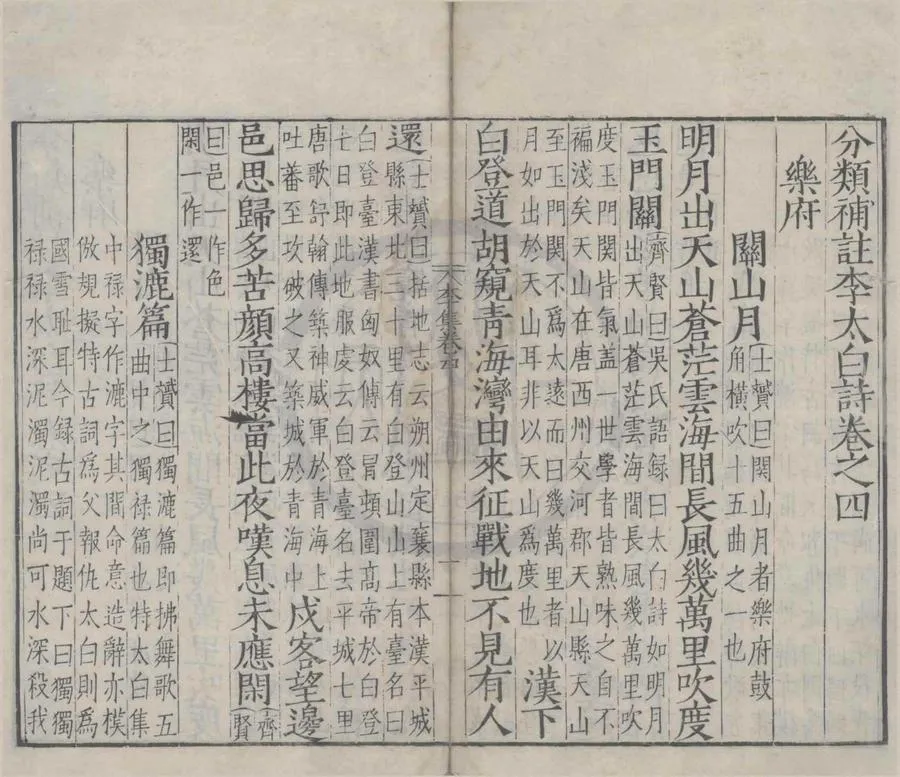 分類補註李太白詩卷之四
樂府
關山月
士贇曰関山月者樂府鼓
角橫吹十五曲之一也
明月出天山蒼茫雲海間長風幾萬里吹度
玉門關
齊賢曰吳氏語録曰太白詩如明月
出天山蒼茫雲海間長風幾萬里吹
度玉門関皆氣盖一世學者皆熟味之自不
褊淺矣天山在唐西州交河郡天山縣天山
至玉門関不爲太遠而曰幾萬里者以
月如出於天山耳非以天山爲度也
漢下
白登道胡窺青海灣由來征戰地不見有人
李集卷四
一
還
士贇曰括地志云朔州定襄縣本漢平城
縣東北三十里有白登山山上有臺名曰
白登臺漢書匈奴傳云冒頓圍高帝於白登
七日即此地服虔云白登臺名去平城七里
唐歌舒翰傳築神威軍於青海上
吐蕃至攻破之又築城於青海中
戍客望邊
邑思歸多苦顔高樓當此夜嘆息未應閑
齊
賢
曰邑一作色
閑一作還
獨漉篇
士贇曰獨漉篇即拂舞歌五
曲中之獨禄篇也特太白集
中禄字作漉字其間命意造辭亦模
倣規擬特古詞爲父報仇太白則爲
國雪耻耳今録古詞于題下曰獨獨
禄禄水深泥濁泥濁尚可水深殺我